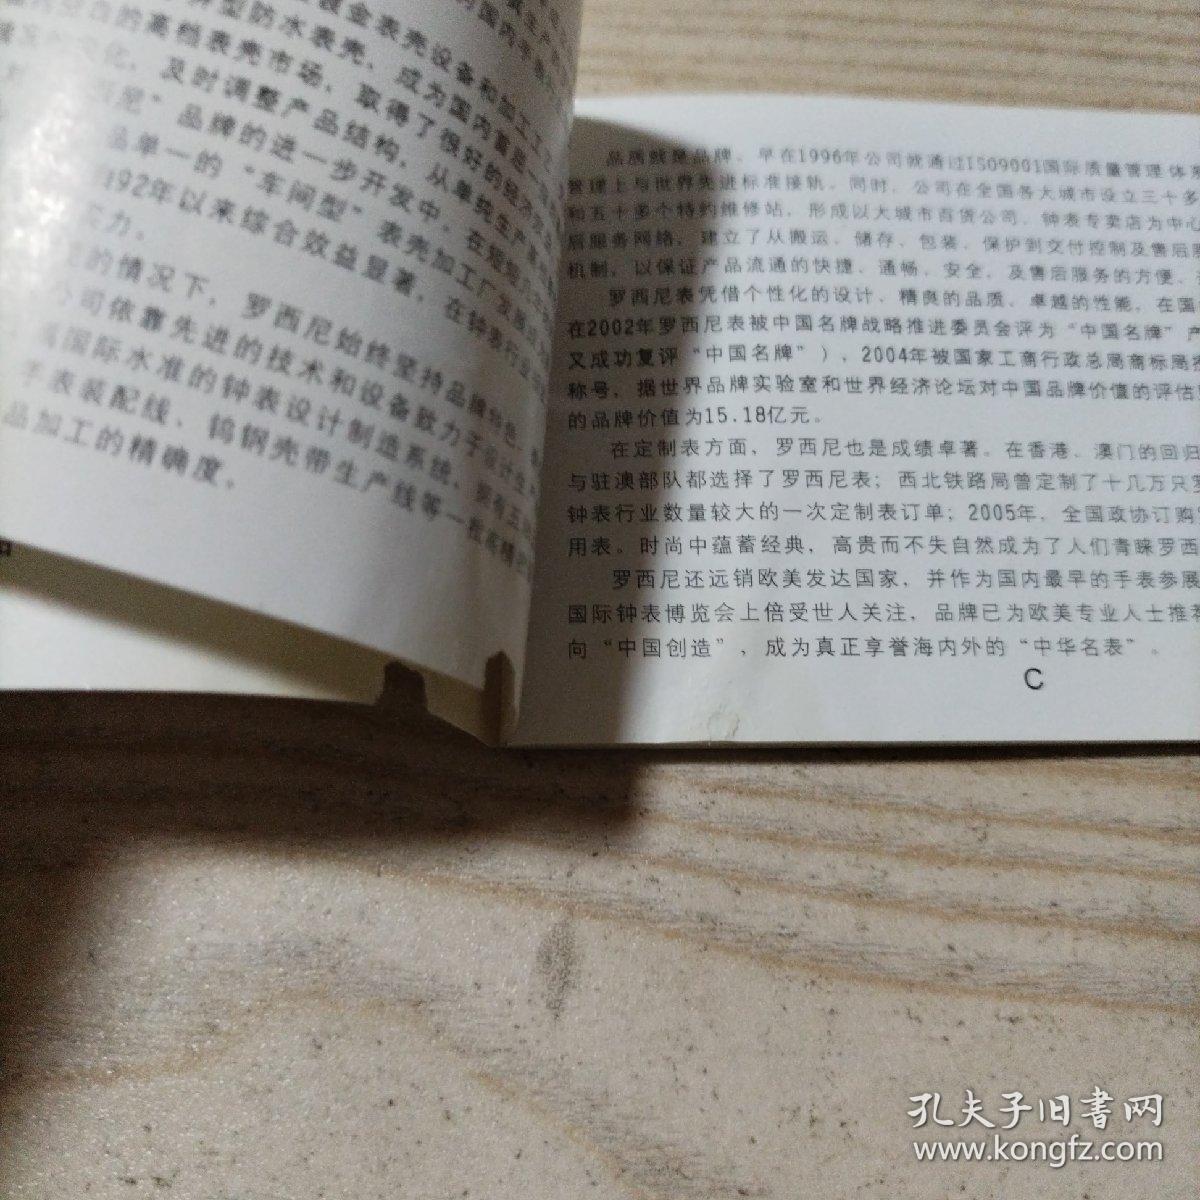 镀金表壳设备和加工工
型防水表壳，成为国内重
的高档表壳市场，取得了很好的经济效
及时调整产品结构，从单纯生产
品牌的进一步开发中，在短短几
品单一的“车间型”表壳加工厂发展成
92年以来综合效益显著，在钟表行业
实力。
的情况下，罗西尼始终坚持品牌特色，
公司依靠先进的技术和设备致力于设计生
国际水准的钟表设计制造系统，拥有
手表装配线、钨钢壳带生产线等一
品加工的精确度。
品质就是品牌，早在1996年公司就通过ISO9001国际质量管理体系
管理上与世界先进标准接轨。同时，公司在全国各大城市设立三十多
和五十多个特约维修站，形成以大城市百货公司、钟表专卖店为中心
后服务网络，建立了从搬运、储存、包装、保护到交付控制及售后
机制，以保证产品流通的快捷、通畅、安全，及售后服务的方便、
罗西尼表凭借个性化的设计、精良的品质、卓越的性能，在国
在2002年罗西尼表被中国名牌战略推进委员会评为“中国名牌”产
又成功复评“中国名牌”），2004年被国家工商行政总局商标局
称号，据世界品牌实验室和世界经济论坛对中国品牌价值的评估
的品牌价值为15.18亿元。
在定制表方面，罗西尼也是成绩卓著。在香港、澳门的回归
与驻澳部队都选择了罗西尼表；西北铁路局曾定制了十几万只罗
钟表行业数量较大的一次定制表订单；2005年，全国政协订购
用表。时尚中蕴蓄经典，高贵而不失自然成为了人们青睐罗西
罗西尼还远销欧美发达国家，并作为国内最早的手表参展
国际钟表博览会上倍受世人关注，品牌已为欧美专业人士推荐
向“中国创造”，成为真正享誉海内外的“中华名表”。
C
孔夫子旧书网
www.kongfz.com